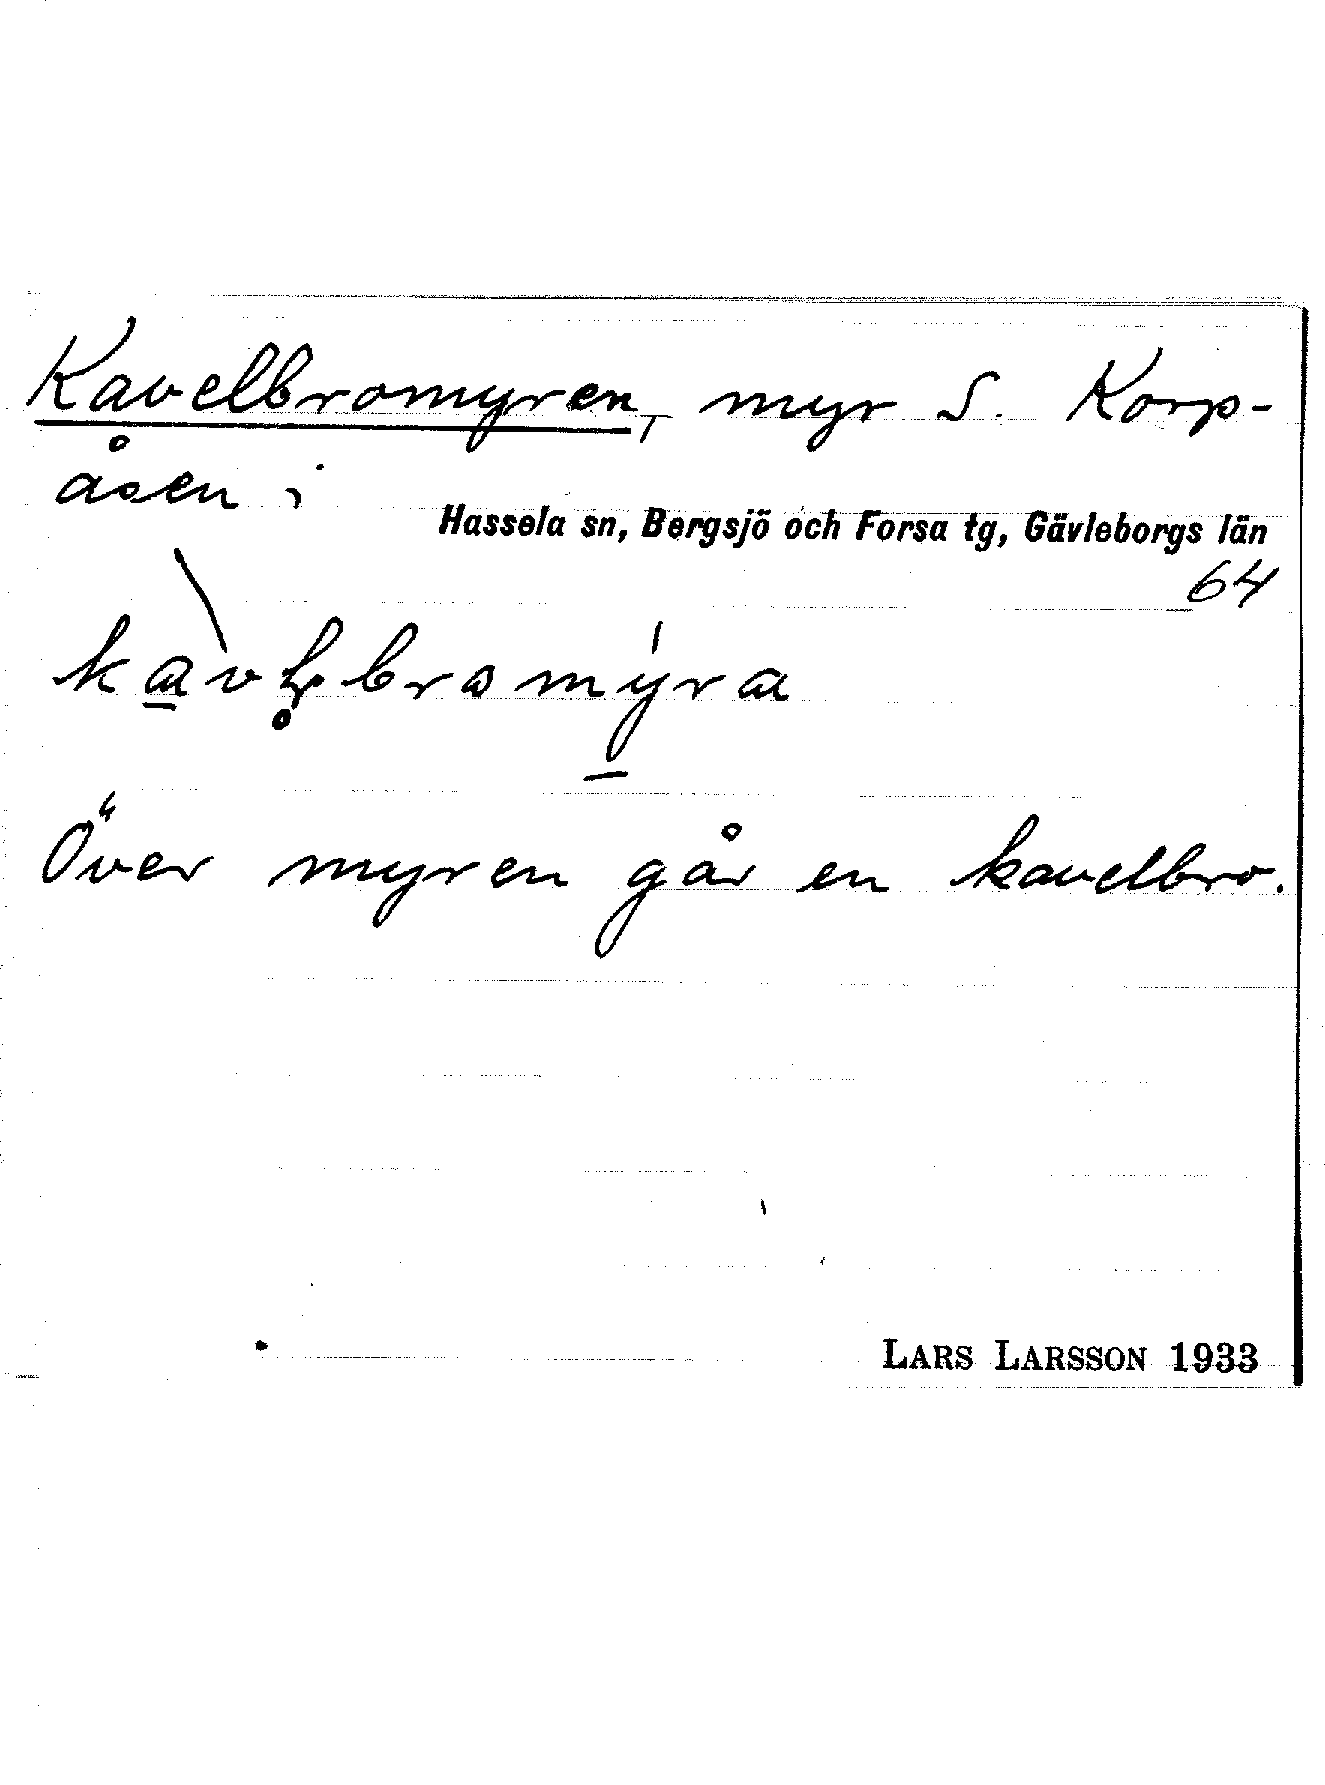 Kavelbromyren, myr S. Korp-
åsen i
Hassela sn, Bergsjö och Forsa tg, Gävleborgs län
64
Över myren går en kavelbro.
LARS LARSSON 1933